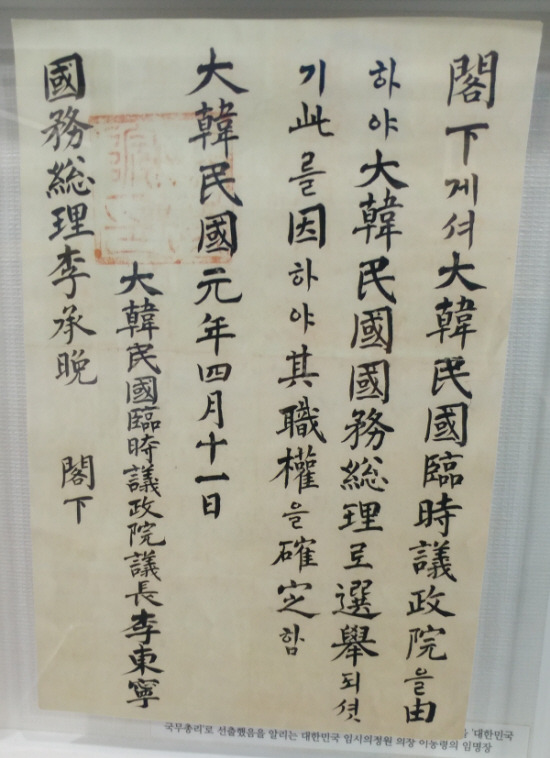 閣下게셔大韓民國臨時議政院을由
하야大韓民國國務総理로選舉되셧
기此를因하야其職權을確定함
大韓民國元年四月十一日
大韓民國臨時議政院議長李東寧
國務総理李承晩 閣下
'대한민국
국무총리'로 선출했음을 알리는 대한민국 임시의정원 의장 이동령의 임명장